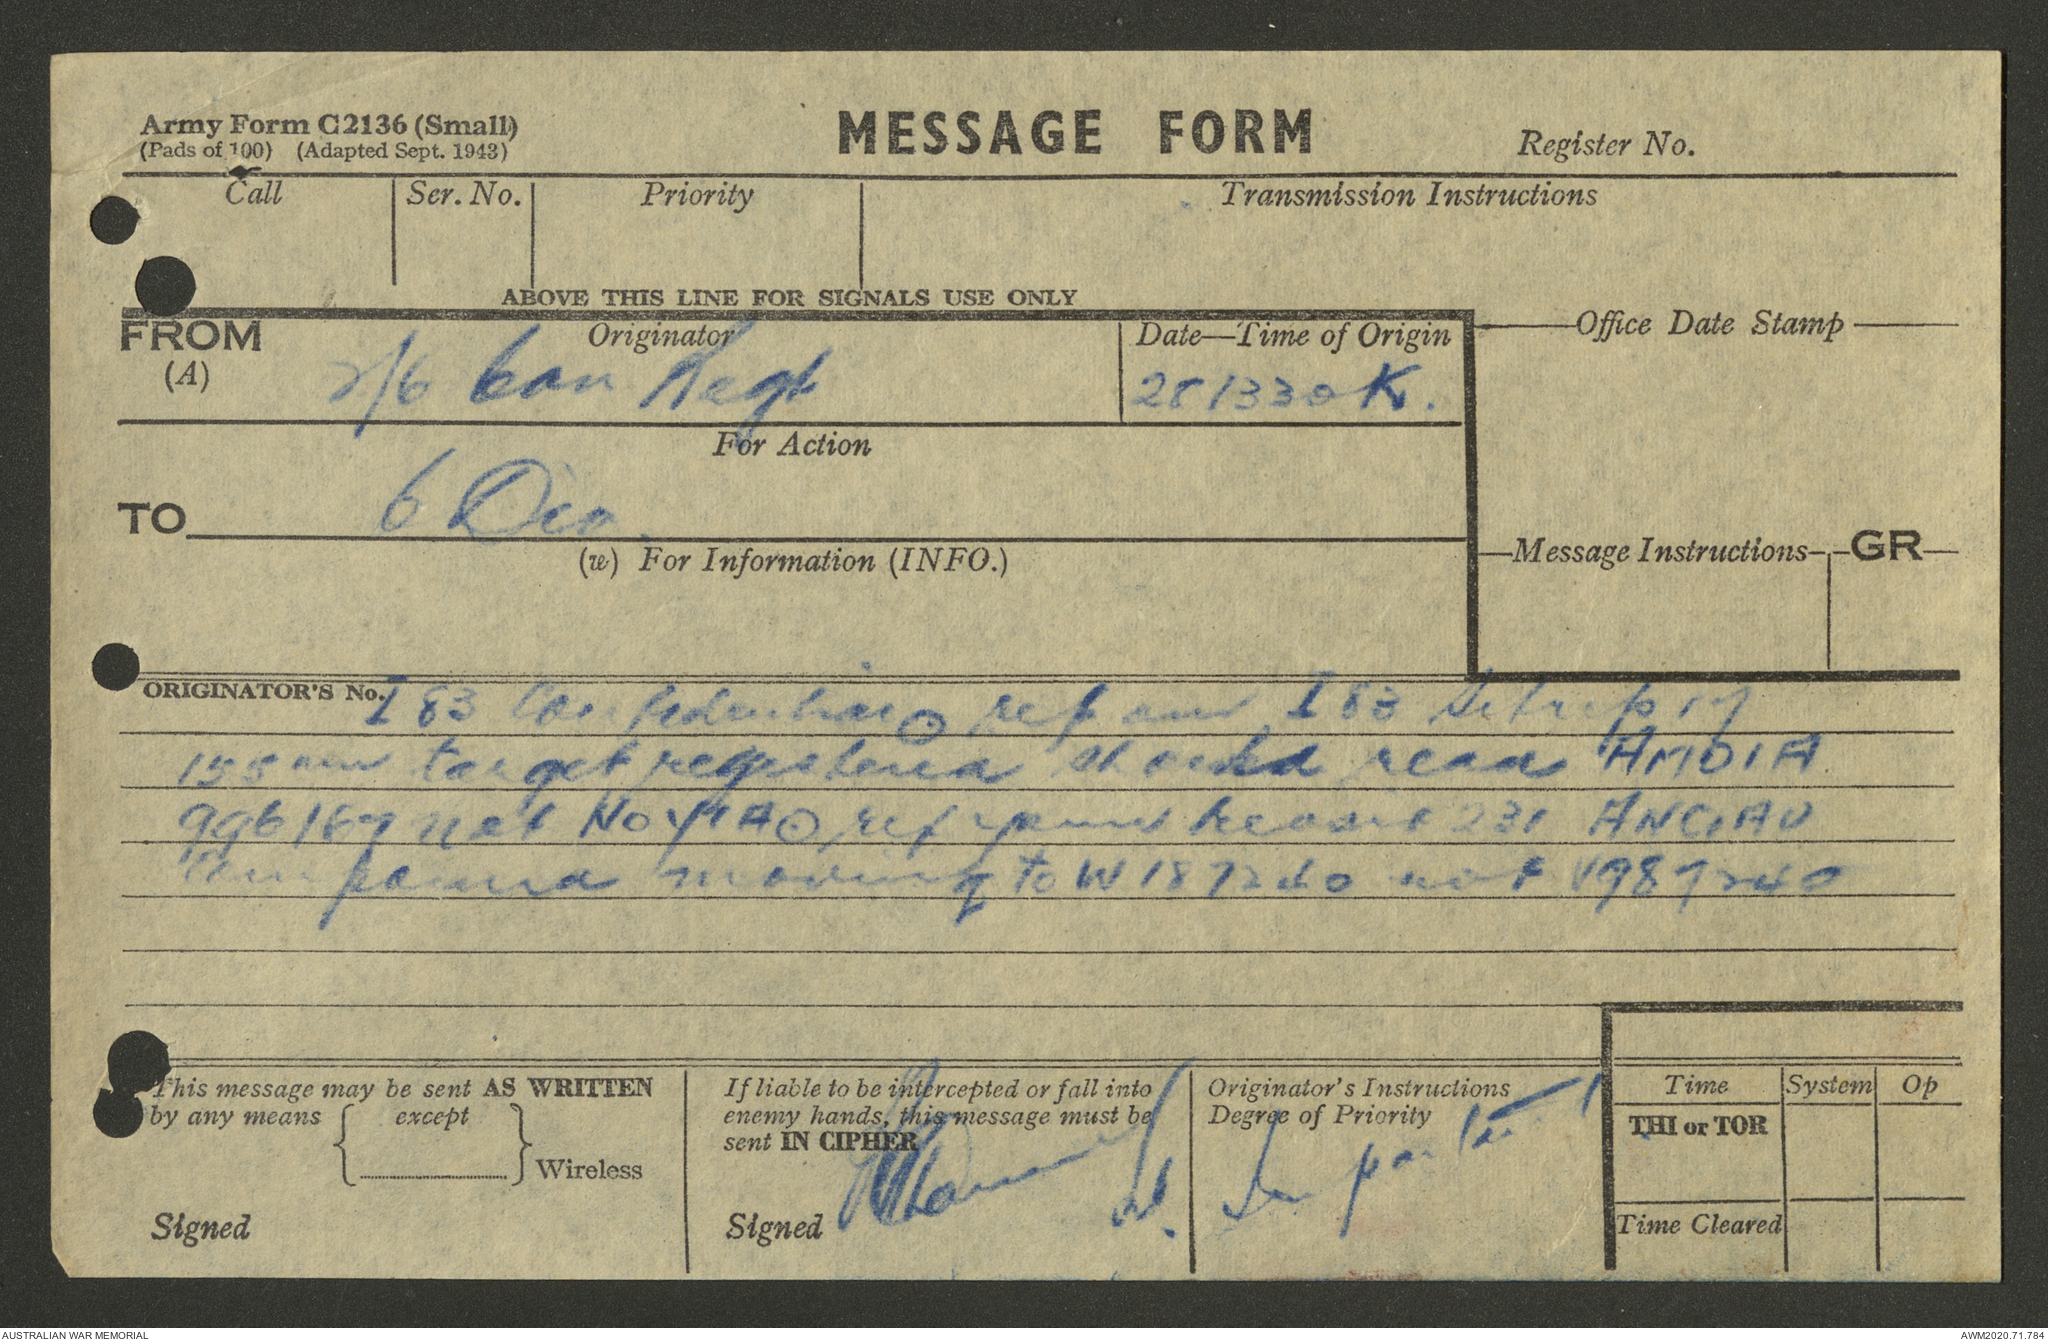 Army Form C2136 (Small)
(Pads of 100) (Adapted Sept. 1943)
MESSAGE FORM
Register No.
Call
Ser. No.
Priority
Transmission Instructions
ABOVE THIS LINE FOR SIGNALS USE ONLY
FROM
(A)
Originator
2/6 Cav Regt
Date—Time of Origin
281330K.
Office Date Stamp
For Action
TO
6 Div.
(w) For Information (INFO.)
Message Instructions
GR
ORIGINATOR'S No.
I 83 Confidential ref our I 83
155mm target registered should read AMOIA
996169 not NOMIA ref yours 231 ANGAU
moving to W 187240 not V987240
This message may be sent AS WRITTEN
by any means
except
Wireless
Signed
If liable to be intercepted or fall into
enemy hands, this message must be
sent IN CIPHER
Signed
Originator's Instructions
Degree of Priority
Important
Time
System
Op
THI or TOR
Time Cleared
AUSTRALIAN WAR MEMORIAL
AWM2020.71.784